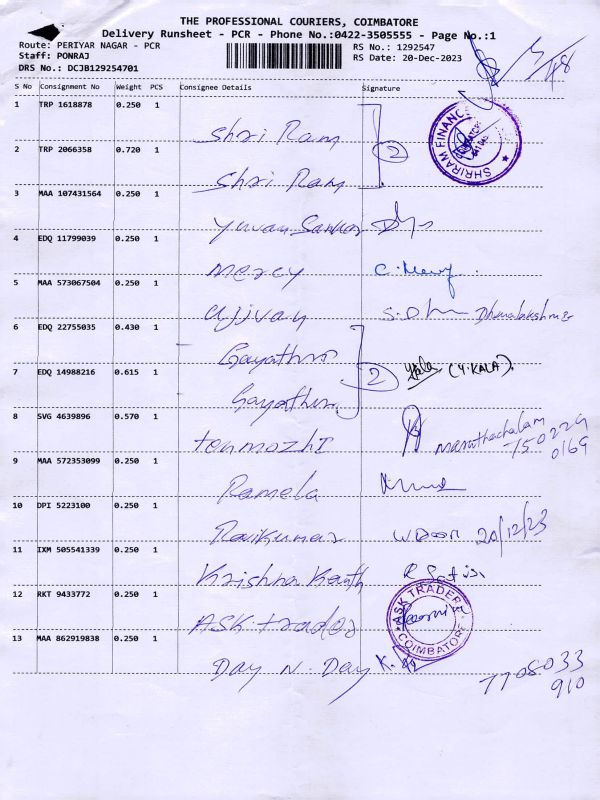 THE PROFESSIONAL COURIERS, COIMBATORE
Delivery Runsheet - PCR - Phone No.:0422-3505555 - Page No.:1
Route: PERIYAR NAGAR - PCR
RS No.: 1292547
Staff: PONRAJ
RS Date: 20-Dec-2023
DRS No.: DCJB129254701
S No Consignment No Weight PCS Consignee Details Signature
1 TRP 1618878 0.250 1
Shri Ram
2 TRP 2066358 0.720 1
2
SHRIRAM FINANCE
Shri Ram
3 MAA 107431564 0.250 1
Yuvan Sankar
4 EDQ 11799039 0.250 1
Mercy C. Mercy
5 MAA 573067504 0.250 1
Ujjivan S.Dhanalakshmi
6 EDQ 22755035 0.430 1
Gayathri
7 EDQ 14988216 0.615 1
2 (Y.KALA).
Gayathri
8 SVG 4639896 0.570 1
tenmozhI Maruthachalam
750229
0169
9 MAA 572353099 0.250 1
Pamela
10 DPI 5223100 0.250 1
Ravikumar W Door 20/12/23
11 IXM 505541339 0.250 1
Krishna Kanth R Satis
12 RKT 9433772 0.250 1
ASK trades
ASK TRADERS
COIMBATORE
13 MAA 862919838 0.250 1
Day N. Day K.
7708033
910